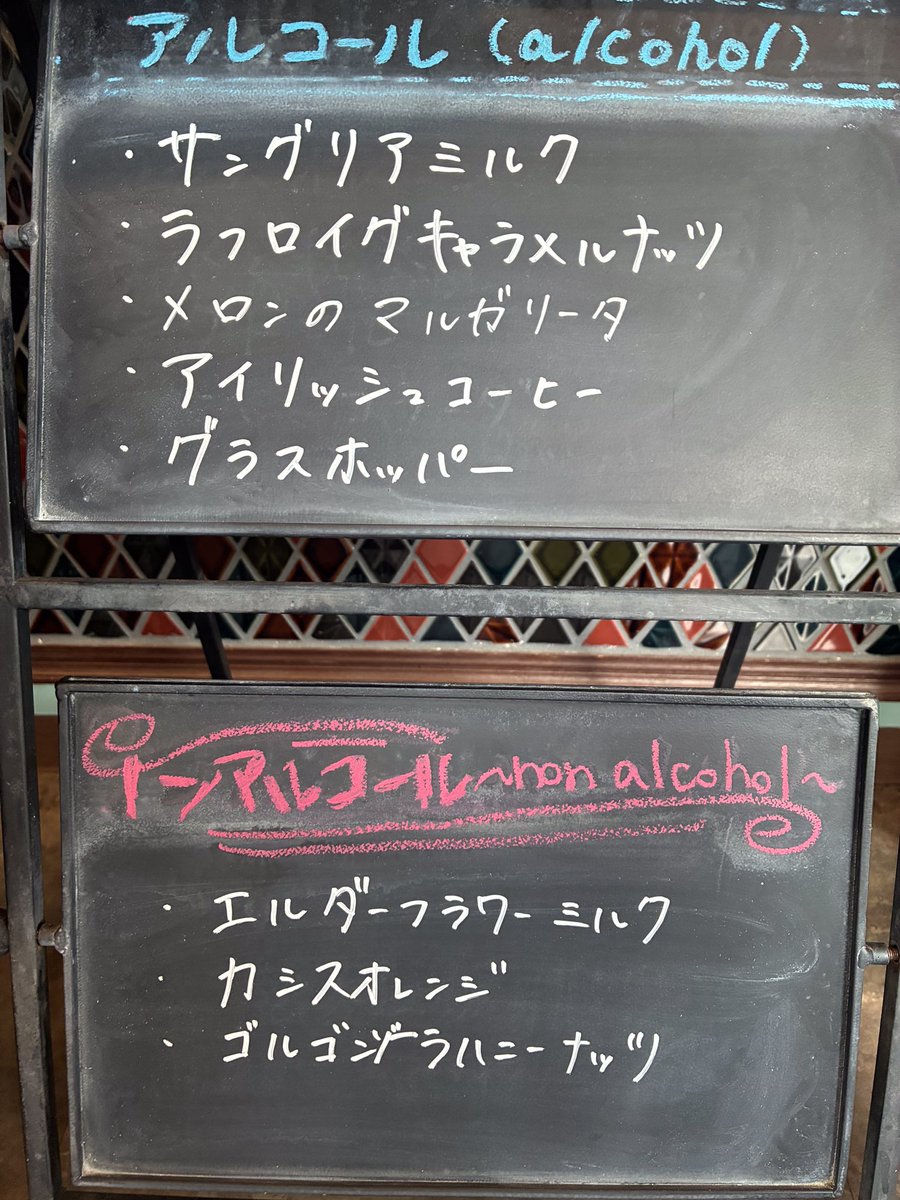 アルコール (alcohol)
・サングリアミルク
・ラフロイグキャラメルナッツ
・メロンのマルガリータ
・アイリッシュコーヒー
・グラスホッパー
ノンアルコール～non alcohol～
・エルダーフラワーミルク
・カシスオレンジ
・ゴルゴンゾーラハニーナッツ